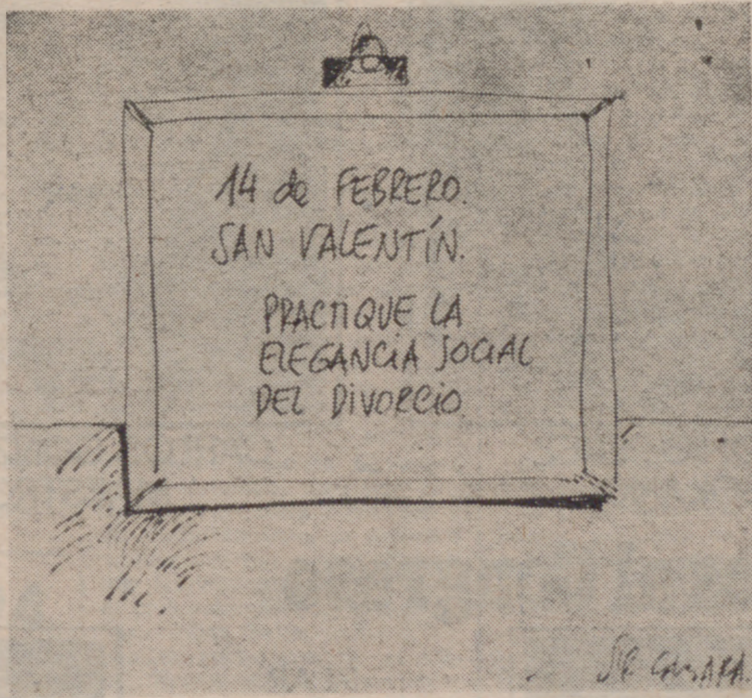 14 de FEBRERO.
SAN VALENTÍN.
PRACTIQUE LA
ELEGANCIA SOCIAL
DEL DIVORCIO